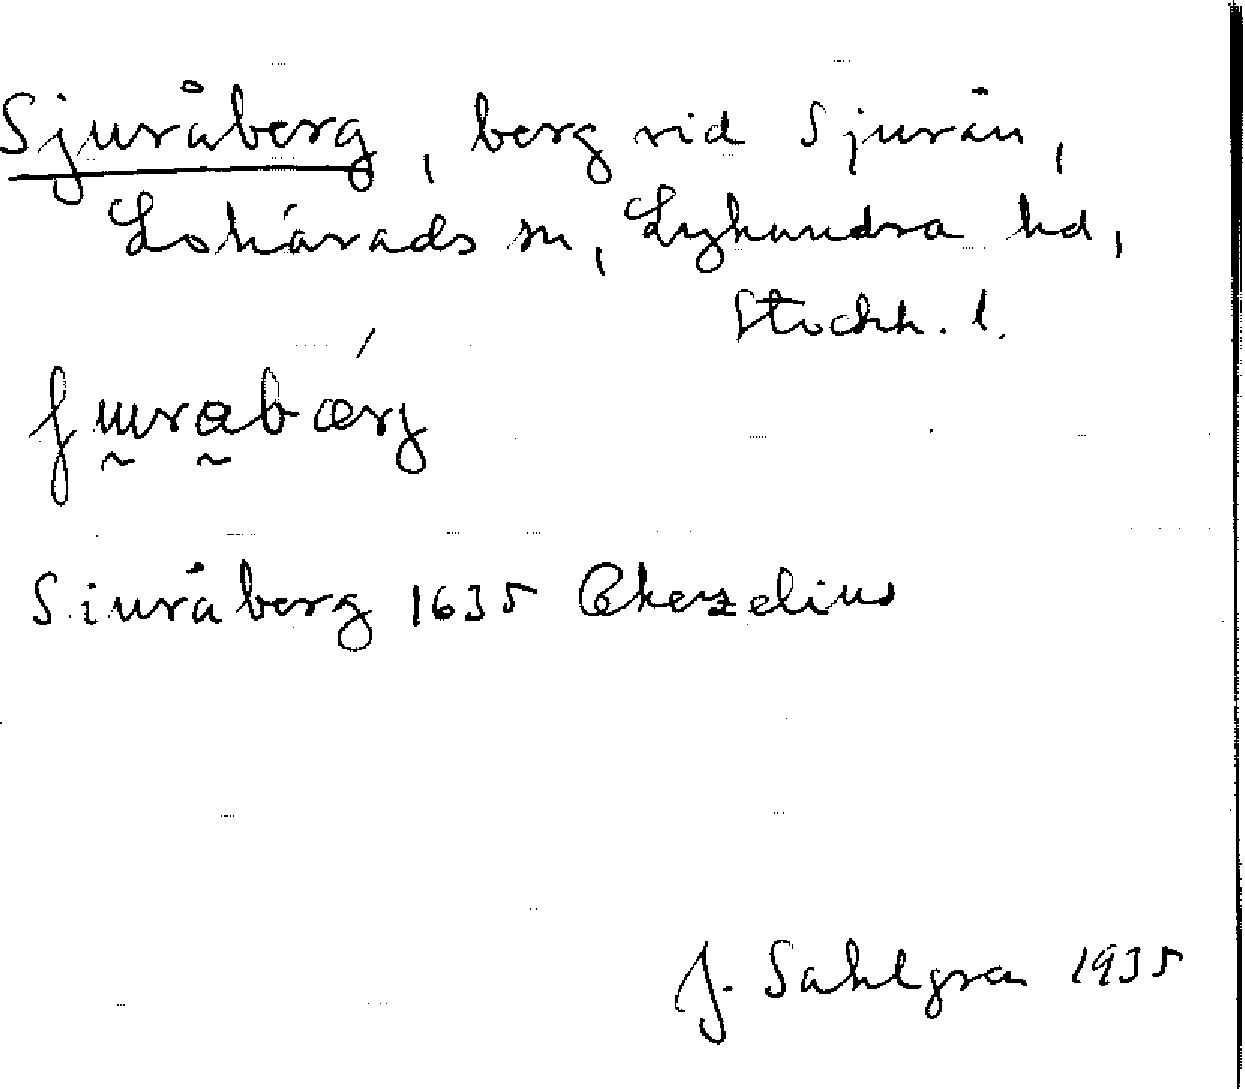 Sjuråberg, berg vid Sjurån,
Lohärads sn, Lyhundra hd,
Stockh. l.
ʃɯrabǽrj
Siuråberg 1635 Ekezelius
J. Sahlgren 1935